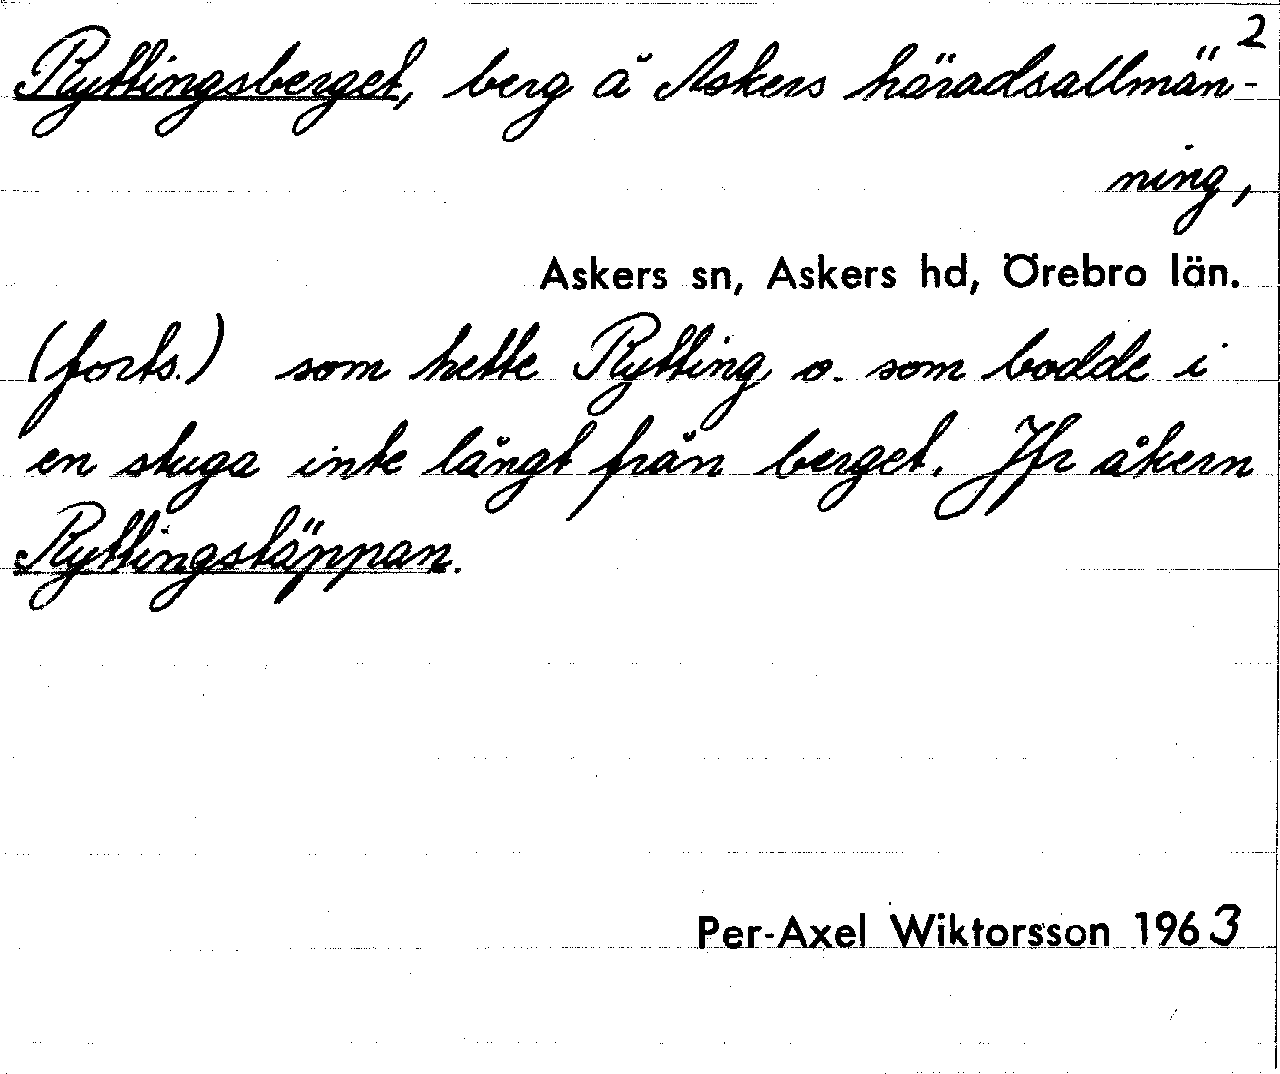 2
Ryttingsberget, berg å Askers häradsallmän-
ning,
Askers sn, Askers hd, Örebro län.
(forts.) som hette Rytting o. som bodde i
en stuga inte långt från berget. Jfr åkern
Ryttingstäppan.
Per-Axel Wiktorsson 1963